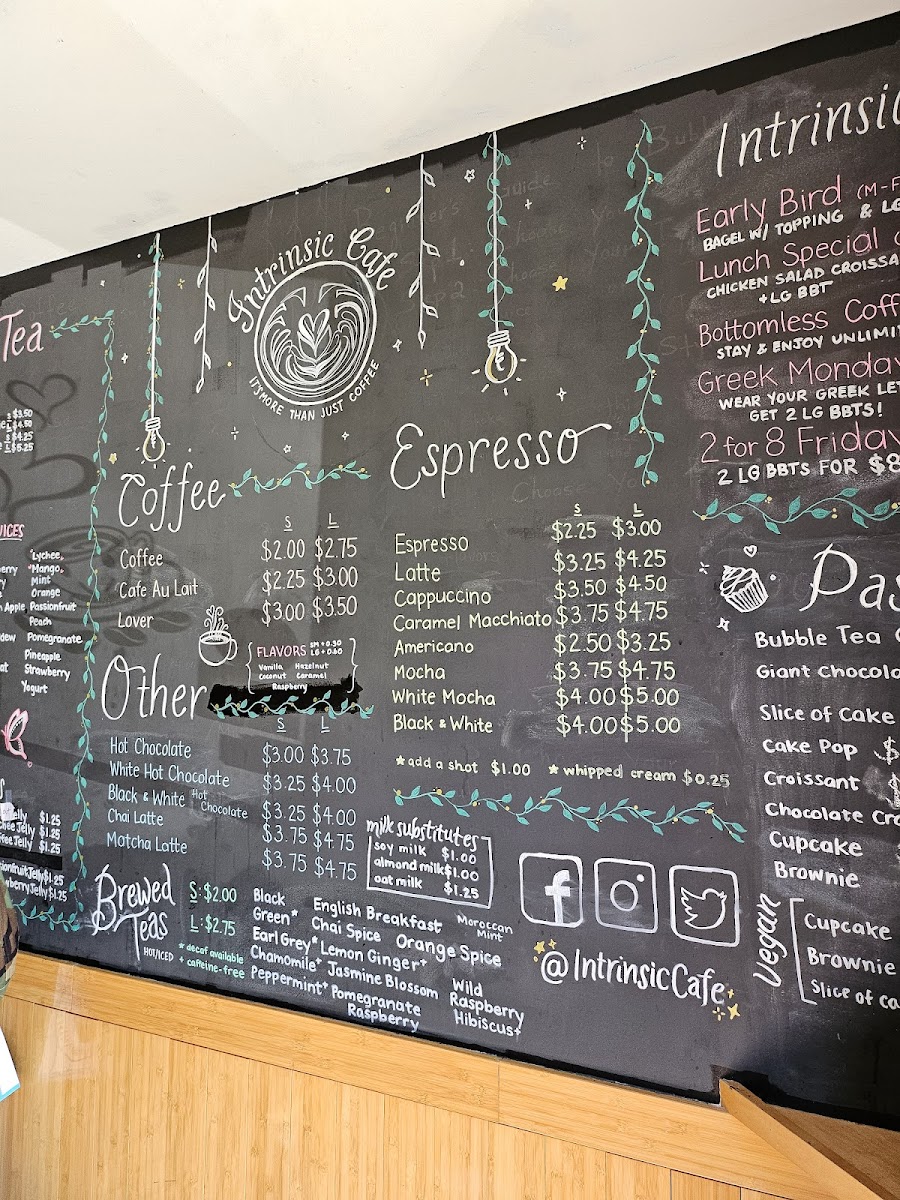 Tea
s $3.50
L $4.50
s $4.25
L $5.25
Lychee
Mango
Mint
Orange
Apple Passionfruit
Peach
Pomegranate
Pineapple
Strawberry
Yogurt
Jelly $1.25
Jelly $1.25
Jelly $1.25
Jelly $1.25
Jelly $1.25
Intrinsic Cafe
IT'S MORE THAN JUST COFFEE
Coffee
S L
Coffee $2.00 $2.75
Cafe Au Lait $2.25 $3.00
Lover $3.00 $3.50
FLAVORS SM + 0.30
LG + 0.60
Vanilla Hazelnut
Coconut Caramel
Raspberry
Other
S L
Hot Chocolate $3.00 $3.75
White Hot Chocolate $3.25 $4.00
Black & White Hot Chocolate $3.25 $4.00
Chai Latte $3.75 $4.75
Motcha Latte $3.75 $4.75
Brewed Teas
HOT/ICED
S: $2.00
L: $2.75
* decaf available
+ caffeine-free
Black
Green*
Earl Grey*
Chamomile+
Peppermint+
English Breakfast
Chai Spice
Orange Spice
Lemon Ginger+
Jasmine Blossom
Pomegranate
Raspberry
Moroccan
Mint
Wild
Raspberry
Hibiscus+
Espresso
S L
Espresso $2.25 $3.00
Latte $3.25 $4.25
Cappuccino $3.50 $4.50
Caramel Macchiato $3.75 $4.75
Americano $2.50 $3.25
Mocha $3.75 $4.75
White Mocha $4.00 $5.00
Black & White $4.00 $5.00
* add a shot $1.00 * whipped cream $0.25
milk substitutes
soy milk $1.00
almond milk $1.00
oat milk $1.25
@IntrinsicCafe
Intrinsic
Early Bird (M-F
BAGEL W/ TOPPING & LG
Lunch Special
CHICKEN SALAD CROISSA
+ LG BBT
Bottomless Coff
STAY & ENJOY UNLIMI
Greek Monday
WEAR YOUR GREEK LET
GET 2 LG BBTS!
2 for 8 Friday
2 LG BBTS FOR $8
Pas
Bubble Tea
Giant Chocola
Slice of Cake
Cake Pop $
Croissant $
Chocolate Cro
Cupcake
Brownie
Vegan
Cupcake
Brownie
Slice of Ca